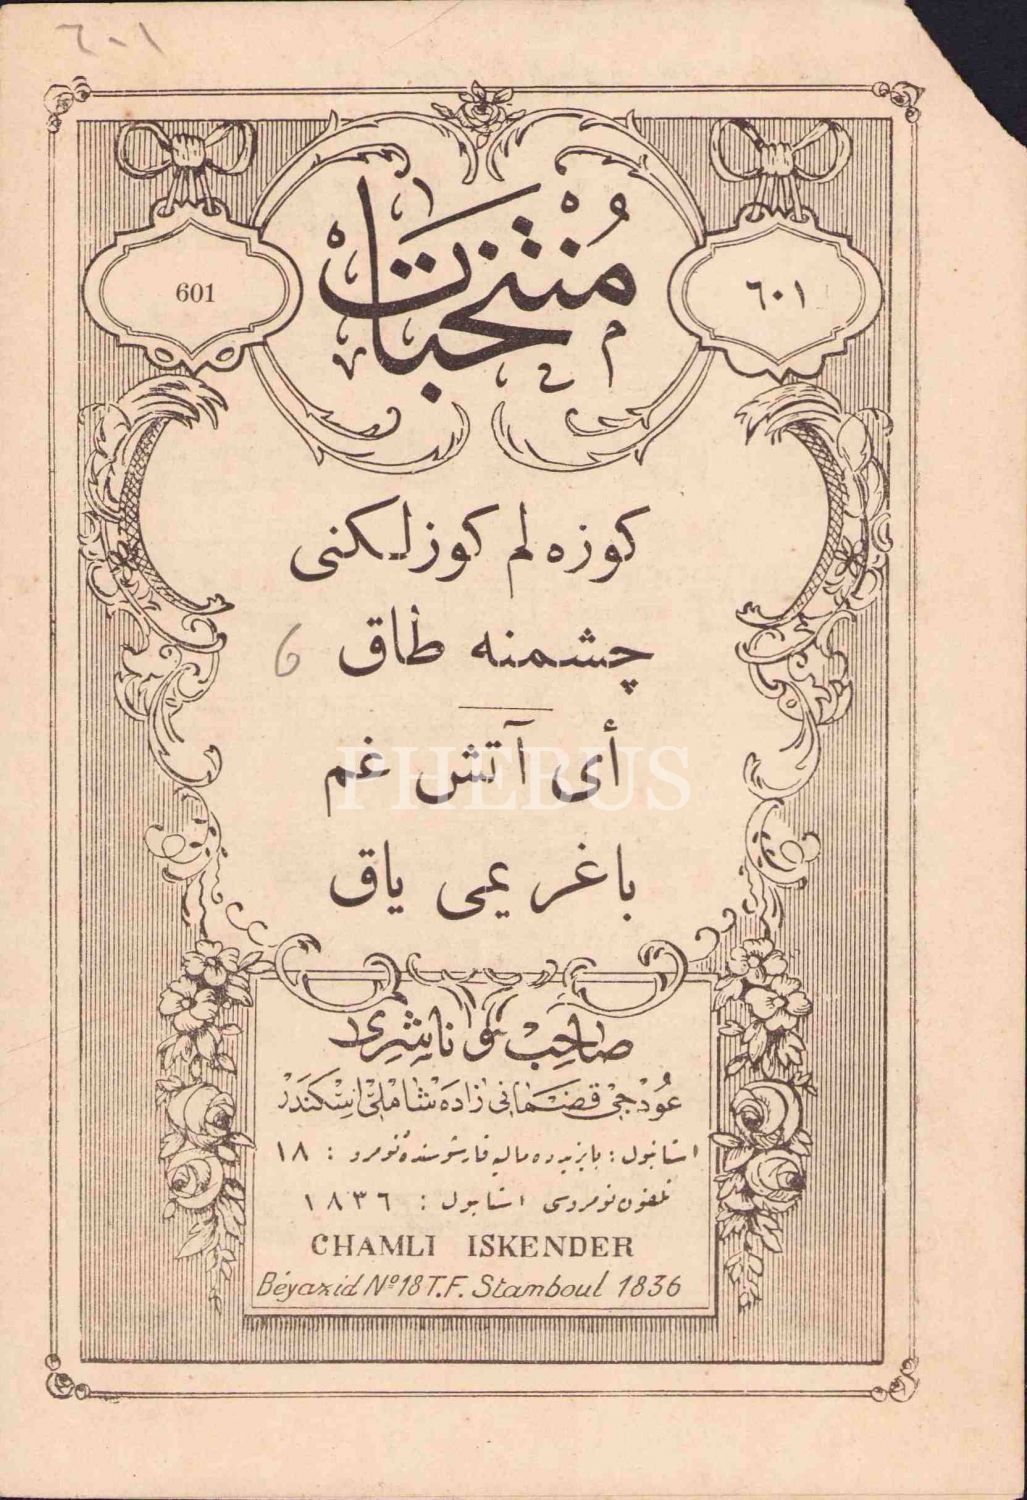 ٦٠١
601
٦٠١
منتخبات
كوزه لم كوزلكنى
چشمنه طاق
6
أى آتش غم
باغر يمى ياق
PHEBUS
صاحب و ناشرى
عودجى قضمانى زاده شاملى اسكندر
استانبول : بايزيدده ماليه قارشوسنده نومرو : ١٨
تلفون نومروسى استانبول : ١٨٣٦
CHAMLI ISKENDER
Béyazid Nº 18 T.F. Stamboul 1836